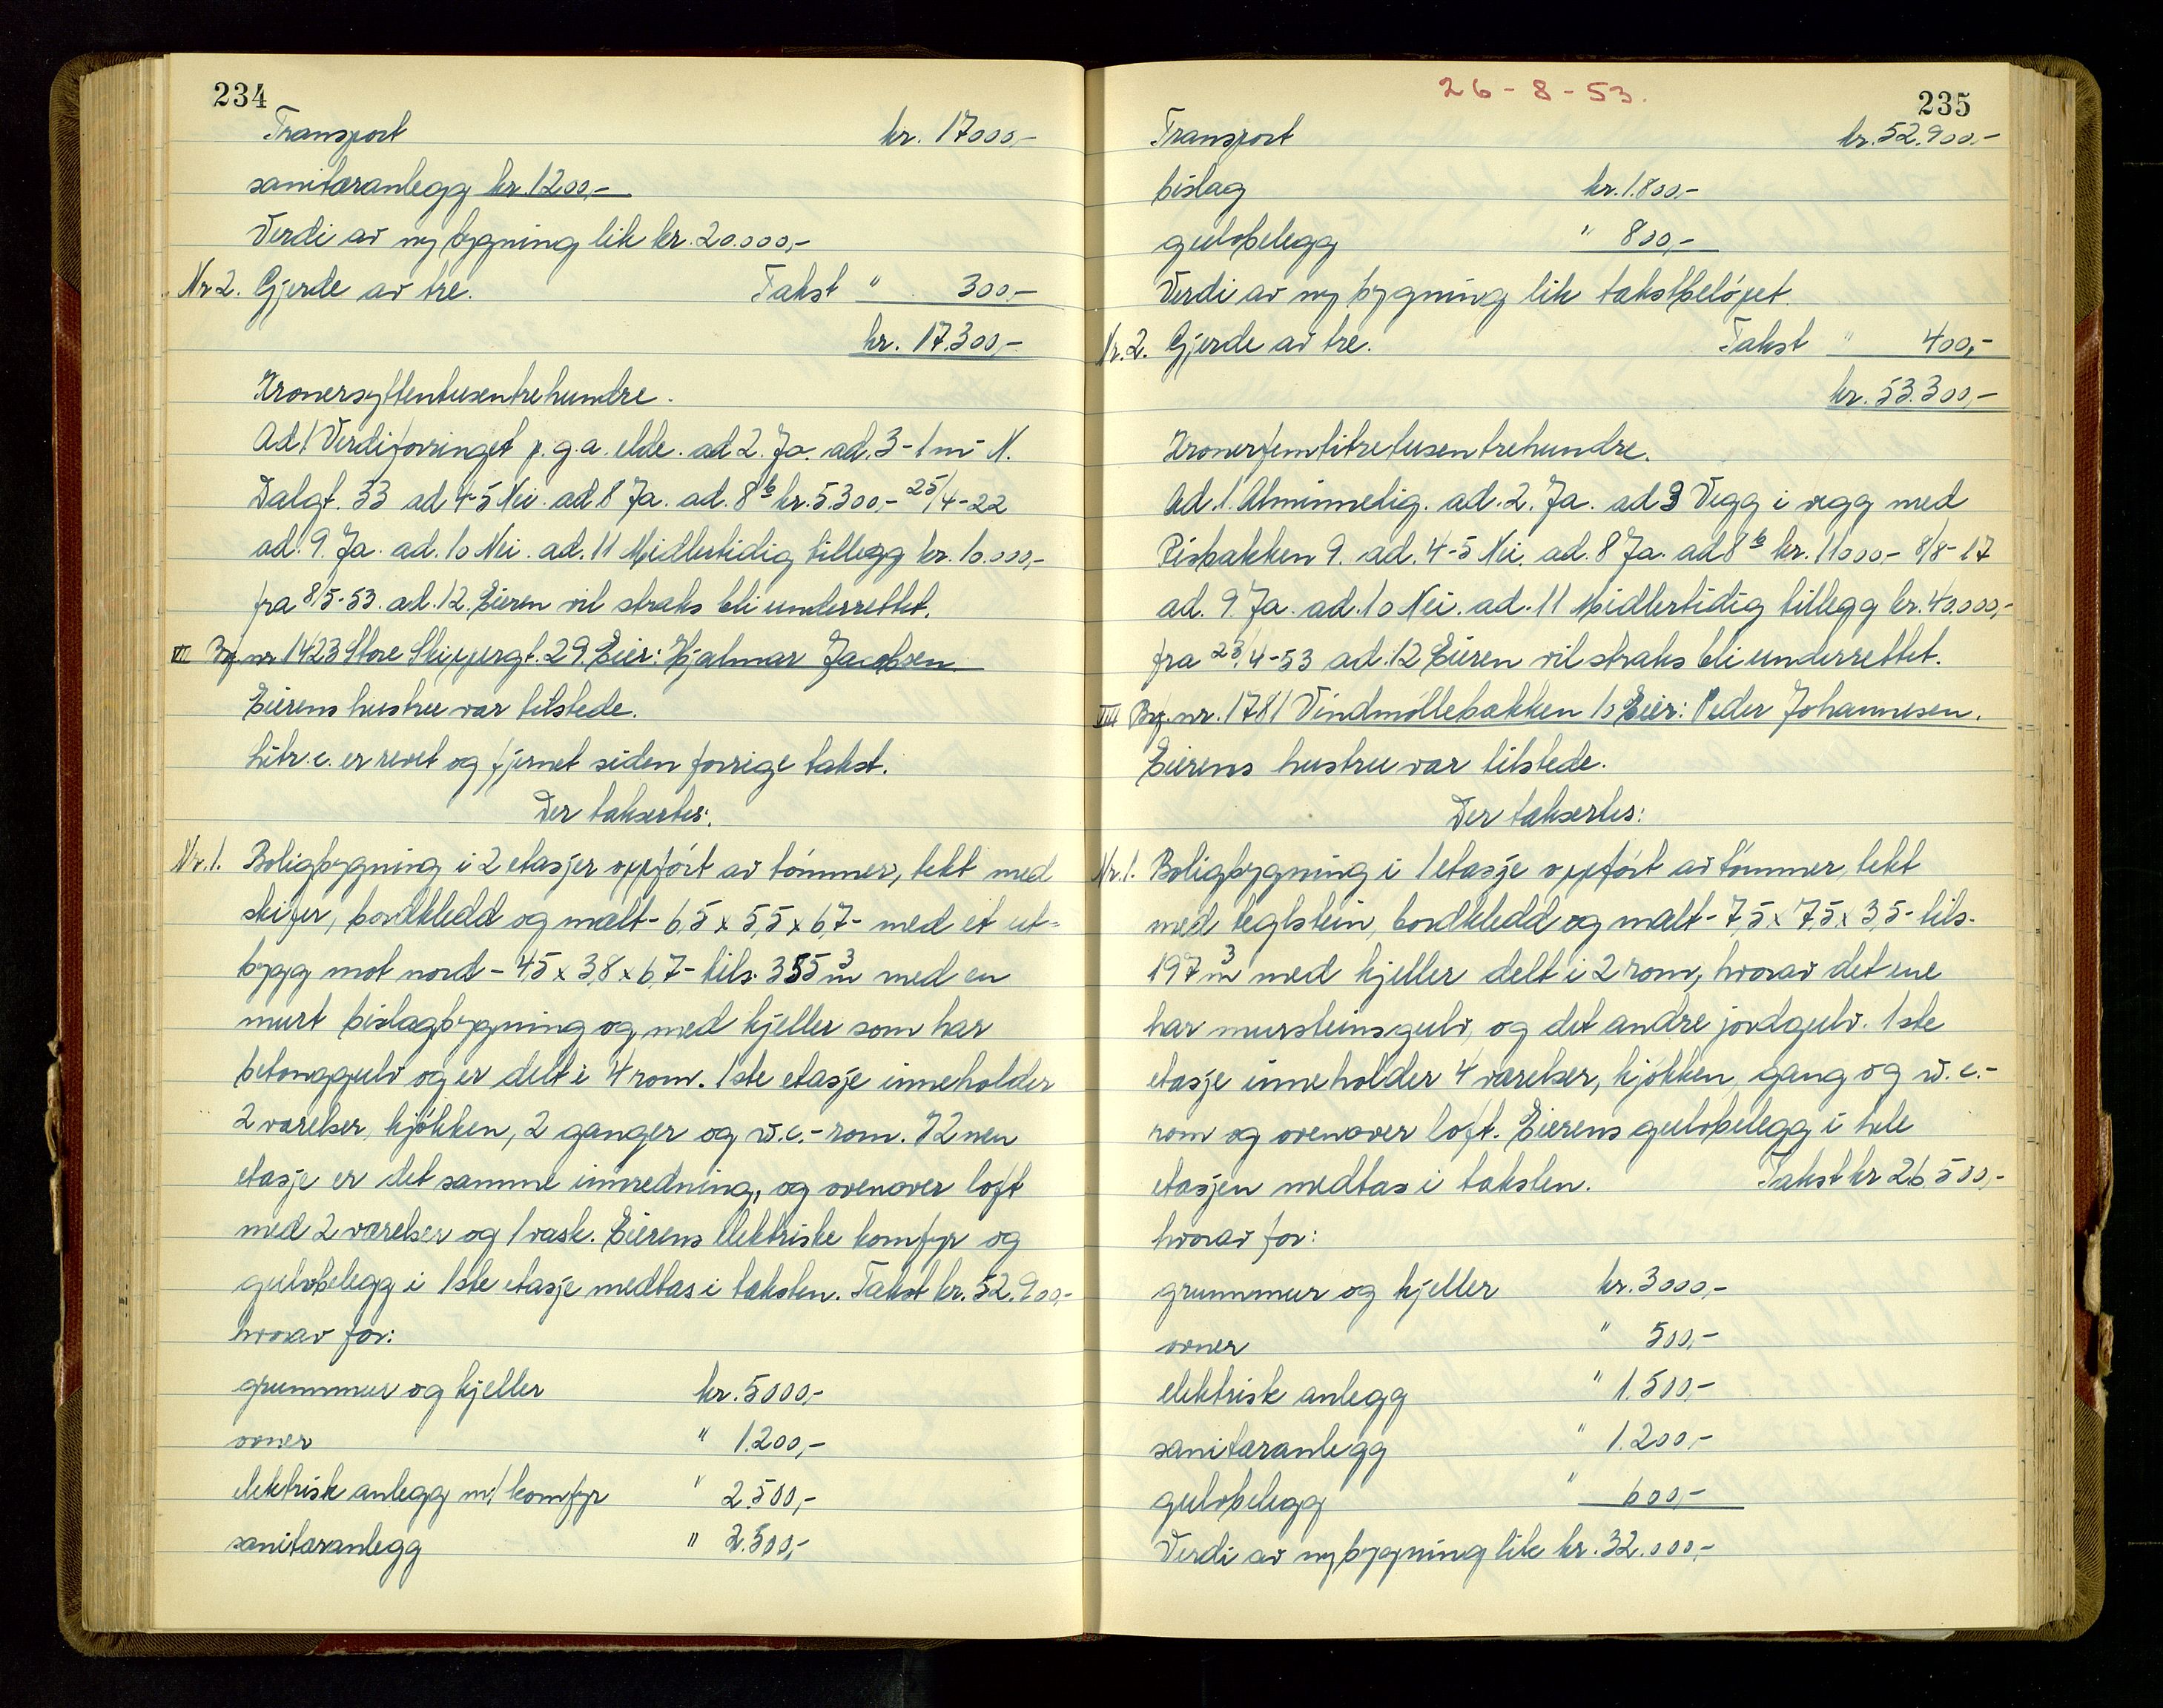 234
Transport kr. 17000,-
sanitæranlegg kr. 1200,-
Verdi av ny bygning lik kr. 20.000,-
Nr 2. Gjerde av tre. Takst " 300,-
kr. 17.300,-
Kronersyttentusentrehundre.
Ad 1 Verdiforringet p.g.a. elde. ad 2. Ja. ad. 3 - 1 m - N.
Dalgt. 33 ad 4-5 Nei. ad 8 Ja. ad. 8 b kr. 5.300,- 25/4-22
ad. 9. Ja. ad. 10 Nei. ad. 11 Midlertidig tillegg kr. 10.000,-
fra 8/5-53. ad. 12. Eieren vil straks bli underrettet.
VII Bg. nr 1423 Store Skippergt. 29. Eier: Hjalmar Jacobsen.
Eierens hustru var tilstede.
Litr. c. er revet og fjernet siden forrige takst.
Der takseres:
Nr. 1. Boligbygning i 2 etasjer oppført av tømmer, tekt med
skifer, bordkledd og malt - 6,5 x 5,5 x 6,7 - med et ut-
bygg mot nord - 4,5 x 3,8 x 6,7 - tils. 355 m3 med en
murt bislagbygning og med kjeller som har
betonggulv og er delt i 4 rom. 1ste etasje inneholder
2 værelser, kjøkken, 2 ganger og w.c.- rom. I 2nen
etasje er det samme innredning, og ovenover loft
med 2 værelser og 1 vask. Eierens elektriske komfyr og
gulvbelegg i 1ste etasje medtas i taksten. Takst kr. 52.900,-
hvorav for:
grunnmur og kjeller kr. 5000,-
ovner " 1.200,-
elektrisk anlegg m/ komfyr " 2.500,-
sanitæranlegg " 2.500,-
26-8-53.
235
Transport kr. 52.900,-
bislag kr. 1.800,-
gulvbelegg " 800,-
Verdi av ny bygning lik takstbeløpet.
Nr. 2. Gjerde av tre. Takst " 400,-
kr. 53.300,-
Kronerfemtitretusentrehundre.
Ad. 1. Alminnelig. ad. 2. Ja. ad 3 Vegg i vegg med
Risbakken 9. ad. 4-5 Nei. ad. 8 Ja. ad 8 b kr. 11000,- 8/8-17
ad. 9. Ja. ad. 10 Nei. ad. 11 Midlertidig tillegg kr. 40.000,-
fra 23/4-53 ad. 12 Eieren vil straks bli underrettet.
VIII Bg. nr. 1781 Vindmøllebakken 10 Eier: Peder Johannesen.
Eierens hustru var tilstede.
Der takseres:
Nr. 1. Boligbygning i 1 etasje oppført av tømmer, tekt
med teglstein, bordkledd og malt - 7,5 x 7,5 x 3,5 - tils.
197 m3 med kjeller delt i 2 rom, hvorav det ene
har mursteinsgulv, og det andre jordgulv. 1ste
etasje inneholder 4 værelser, kjøkken, gang og w.c.-
rom og ovenover loft. Eierens gulvbelegg i hele
etasjen medtas i taksten. Takst kr 26.500,-
hvorav for:
grunnmur og kjeller kr. 3000,-
ovner " 500,-
elektrisk anlegg " 1.500,-
sanitæranlegg " 1.200,-
gulvbelegg " 600,-
Verdi av ny bygning lik kr. 32.000,-